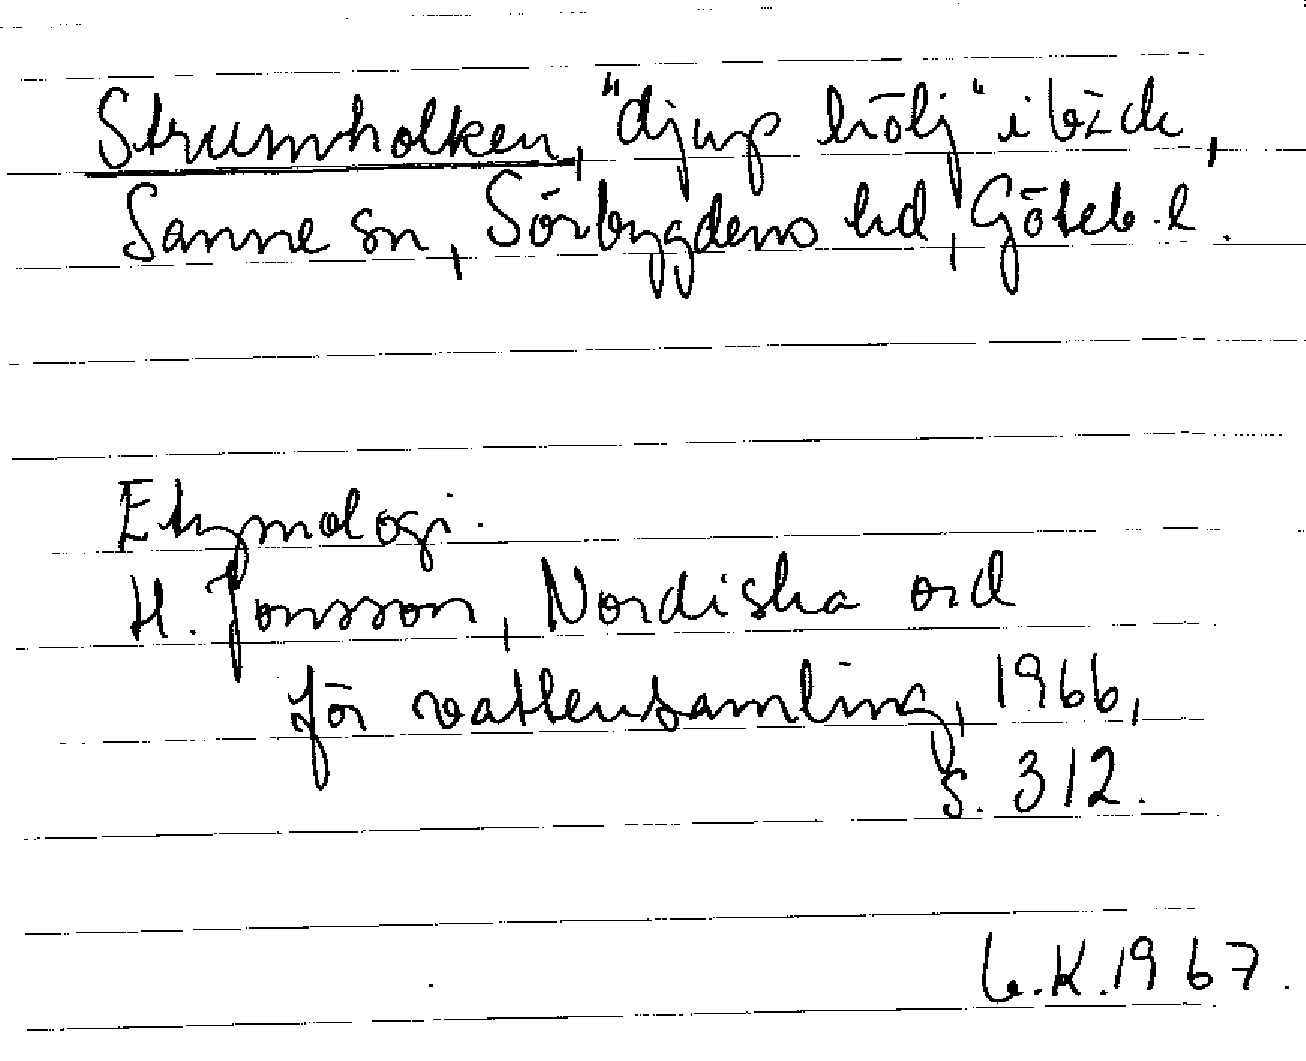 Strumholken, "djup hölj" i bäck,
Sanne sn, Sörbygdens hd, Göteb. l.
Etymologi.
H. Jonsson, Nordiska ord
för vattensamling, 1966,
s. 312.
G.K. 1967.